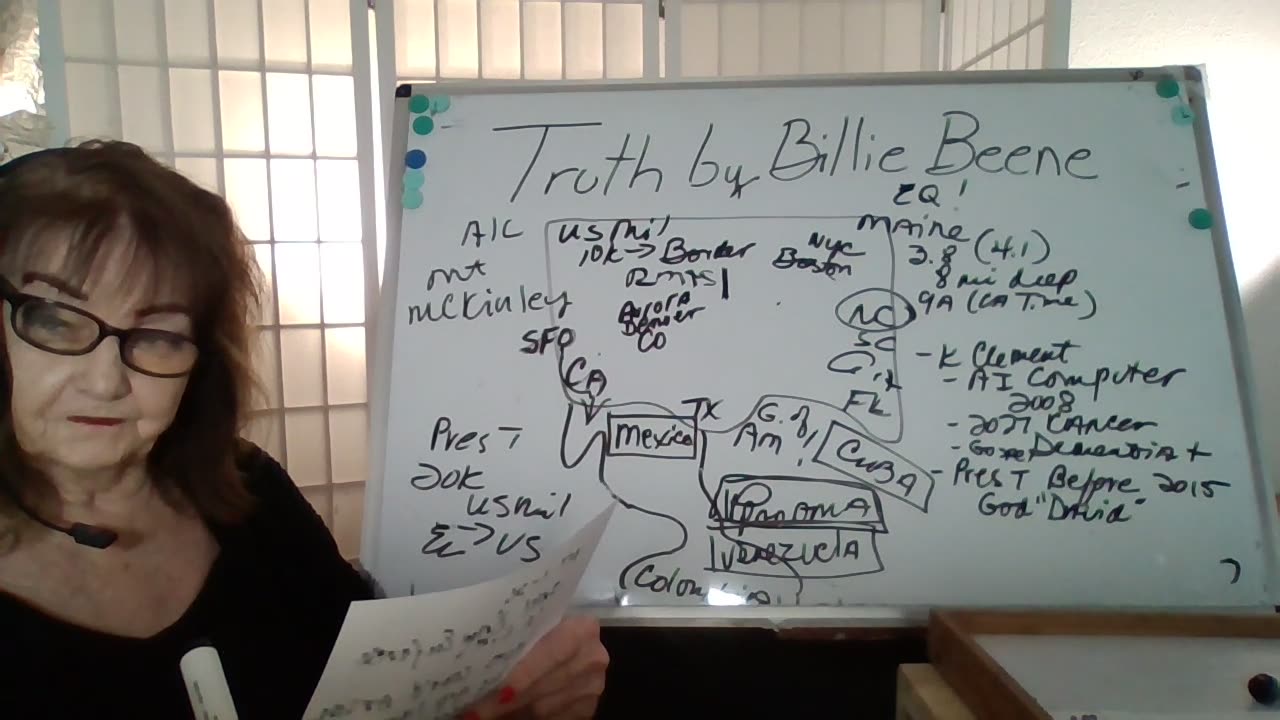 Truth by Billie Beene
EQ!
A/C
mt
mcKinley
SFO
CA
Pres T
20K
US mil
→ US
US mil
10K → Border
Rmts
Aurora
Denver
CO
NYC
Boston
MAine
3.8 (4.1)
8 mi deep
9A (CA Time)
NC
SC
FL
TX
mexico
G. of
Am!
CUBA
PANAMA
Venezuela
- K Clement
- AI Computer
2008
- 2027 CAncer
Dementia +
- Pres T Before 2015
God "David"